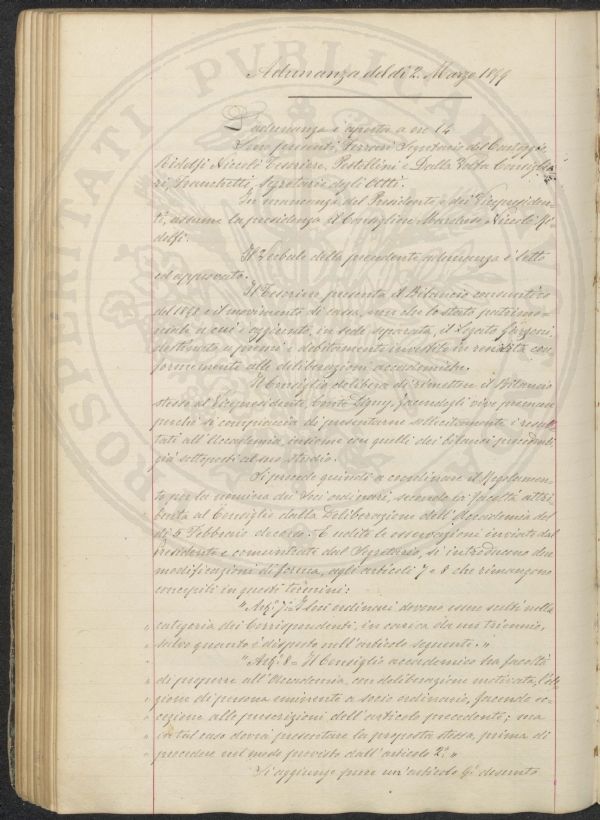 Adunanza del dì 2. Marzo 1899
L'adunanza è aperta a ore 14
Son presenti, Ferrari Segretario del Carteggio
Ridolfi Niccolò Tesoriere, Pestellini e Dalla Volta Consiglie-
ri, Franchetti, Segretario degli Atti.
In mancanza del Presidente e dei Vicepresiden-
ti, assume la presidenza il Consigliere Marchese Niccolò Ri-
dolfi.
Il Verbale della precedente adunanza è letto
ed approvato.
Il Tesoriere presenta il Bilancio consuntivo
del 1898 e il movimento di cassa, non che lo stato patrimo-
niale a cui è aggiunto, in sede separata, il Legato
destinato a premi e debitamente investito in rendita con-
formemente alle deliberazioni accademiche.
Il Consiglio delibera di rimettere il Bilancio
stesso al Vicepresidente, Conte Digny, facendogli vive premure
perchè si compiaccia di presentarne sollecitamente i resul-
tati all'Accademia, insieme con quelli dei bilanci precedenti
già sottoposti al suo studio.
Si procede quindi a coordinare il Regolamen-
to per la nomina dei Soci ordinari, secondo la facoltà attri-
buita al Consiglio dalla Deliberazione dell'Accademia del
dì 5 Febbraio decorso. E udite le osservazioni inviate dal
Presidente e comunicate dal Segretario, si introducono due
modificazioni di forma, agli articoli 7 e 8 che rimangono
concepiti in questi termini:
" Art.º 7 = I Soci ordinari devono esser scelti nella
" categoria dei Corrispondenti, in carica da un triennio,
" salvo quanto è disposto nell'articolo seguente. "
" Art.º 8 = Il Consiglio accademico ha facoltà
" di proporre all'Accademia, con deliberazione motivata, l'ele-
" zione di persona eminente a socio ordinario, facendo ec-
" cezione alle prescrizioni dell'articolo precedente; ma
" in tal caso dovrà presentare la proposta stessa, prima di
" procedere nel modo previsto dall'articolo 2º "
Si aggiunge pure un articolo 9º desunto
PROSPERITATI PVBLICAE